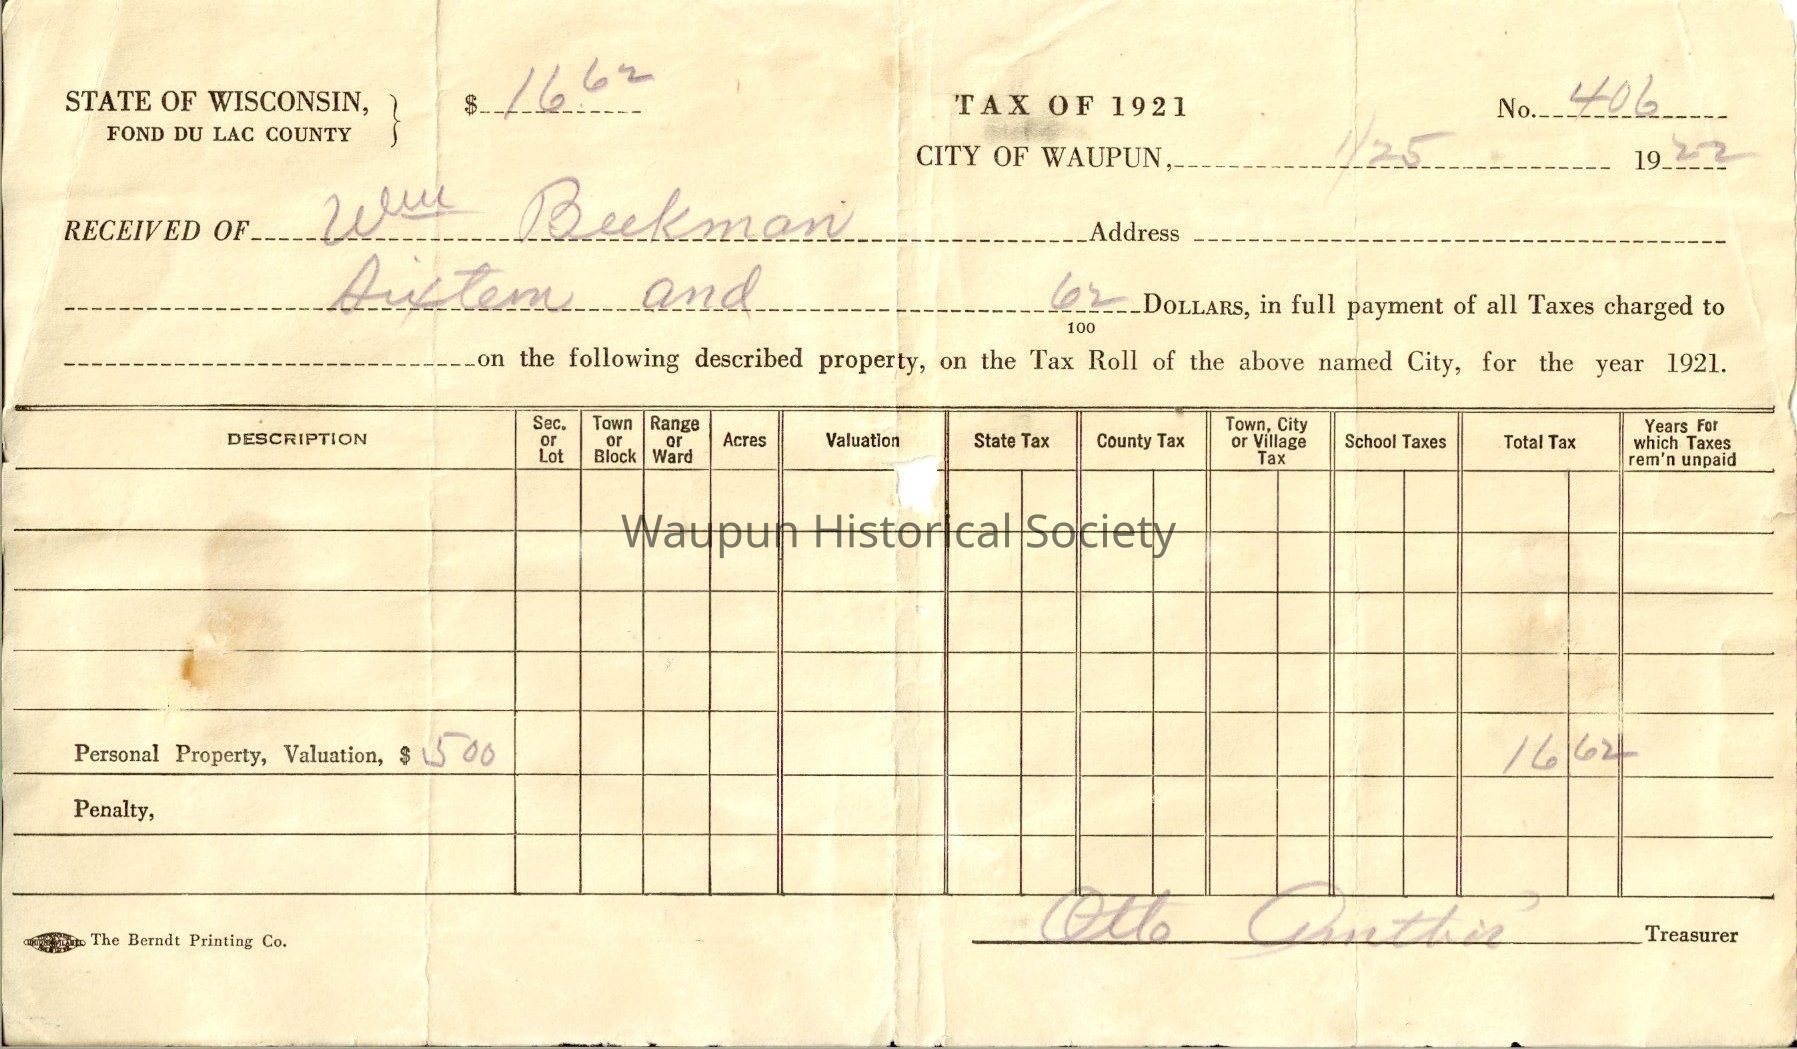 STATE OF WISCONSIN,
FOND DU LAC COUNTY
$ 16.62
TAX OF 1921
No. 406
CITY OF WAUPUN, 1/25 1922
RECEIVED OF Wm Beekman Address
Sixteen and 62/100 DOLLARS, in full payment of all Taxes charged to
on the following described property, on the Tax Roll of the above named City, for the year 1921.
DESCRIPTION Sec. or Lot Town or Block Range or Ward Acres Valuation State Tax County Tax Town, City or Village Tax School Taxes Total Tax Years For which Taxes rem'n unpaid
Waupun Historical Society
Personal Property, Valuation, $ 500 16 62
Penalty,
Otto Treasurer
The Berndt Printing Co.